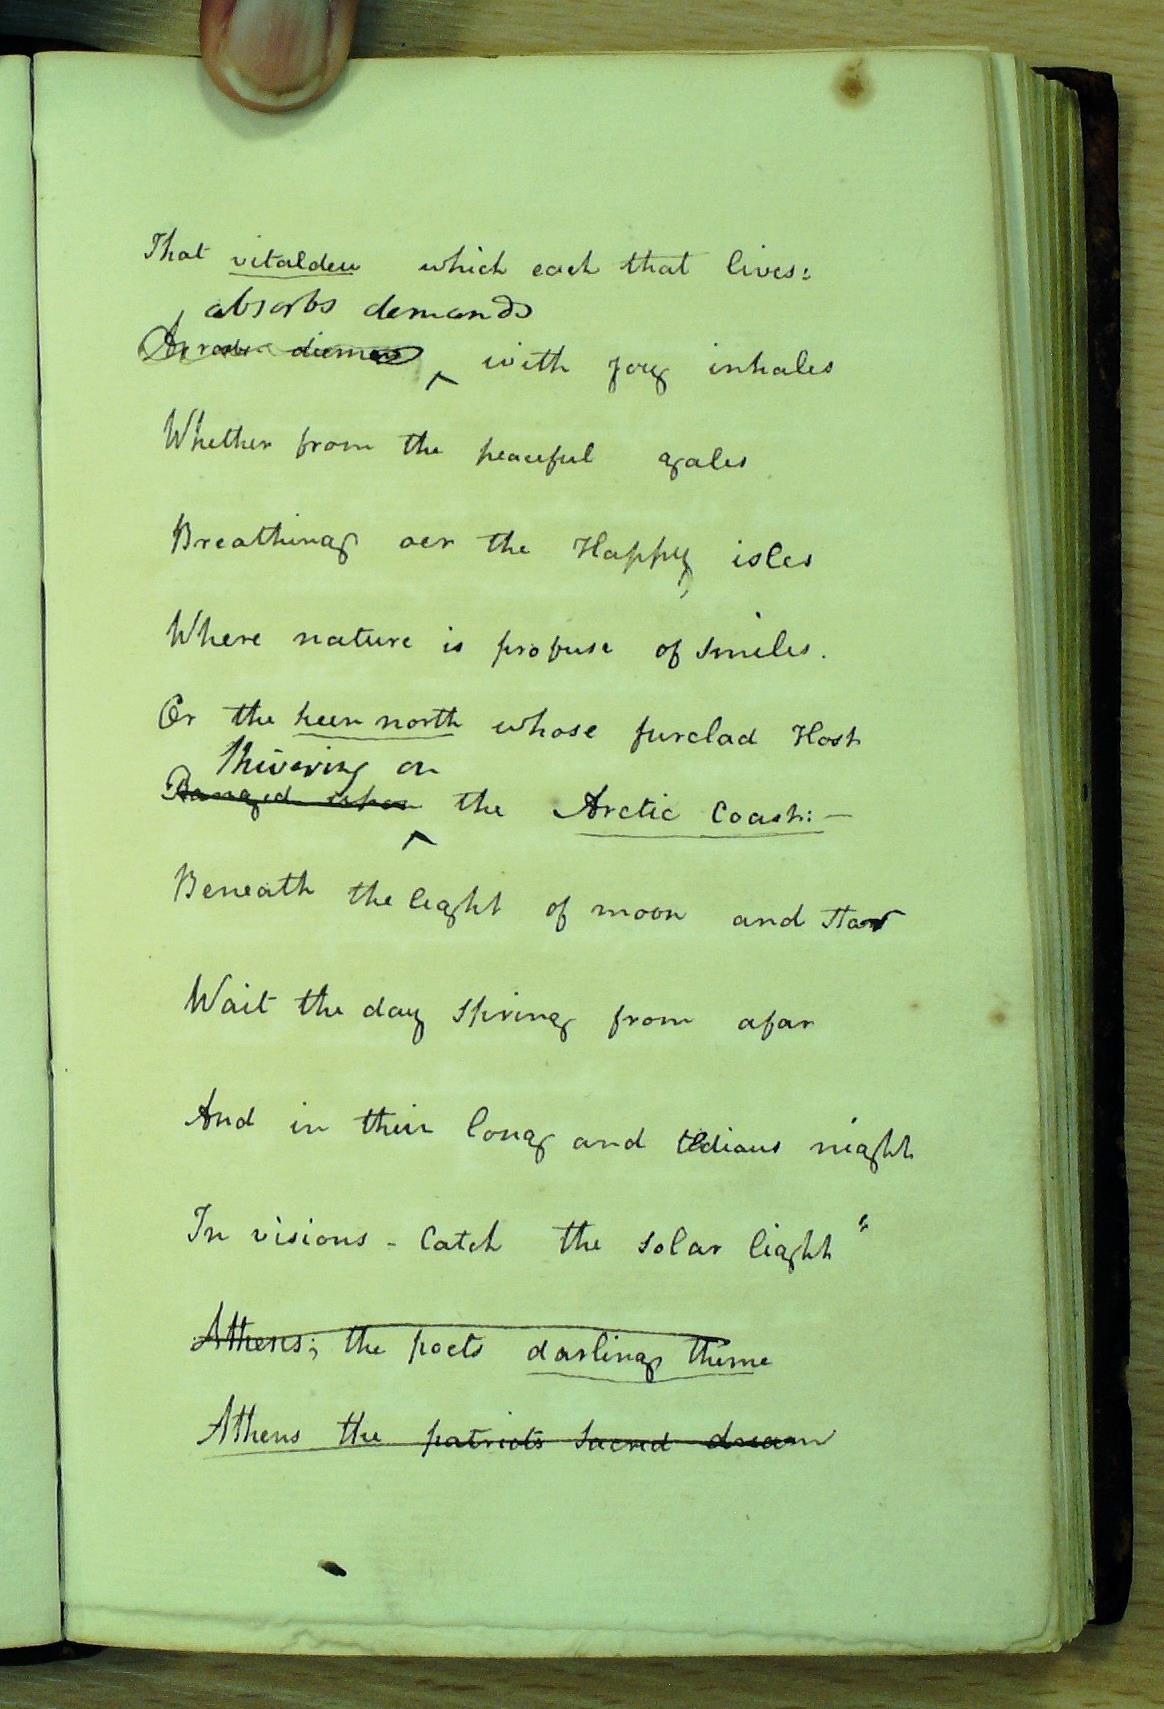 That vitaldew which each that lives:
absorbs demands
with joy inhales
Whether from the peaceful gales
Breathing oer the Happy isles
Where nature is profuse of smiles.
Or the keen north whose furclad Host
Shivering on
Ranged upon the Arctic Coast: —
Beneath the light of moon and star
Wait the day spring from afar
And in their long and tedious night
In visions - Catch the solar light"
Athens; the poets darling theme
Athens the patriots sacred dream